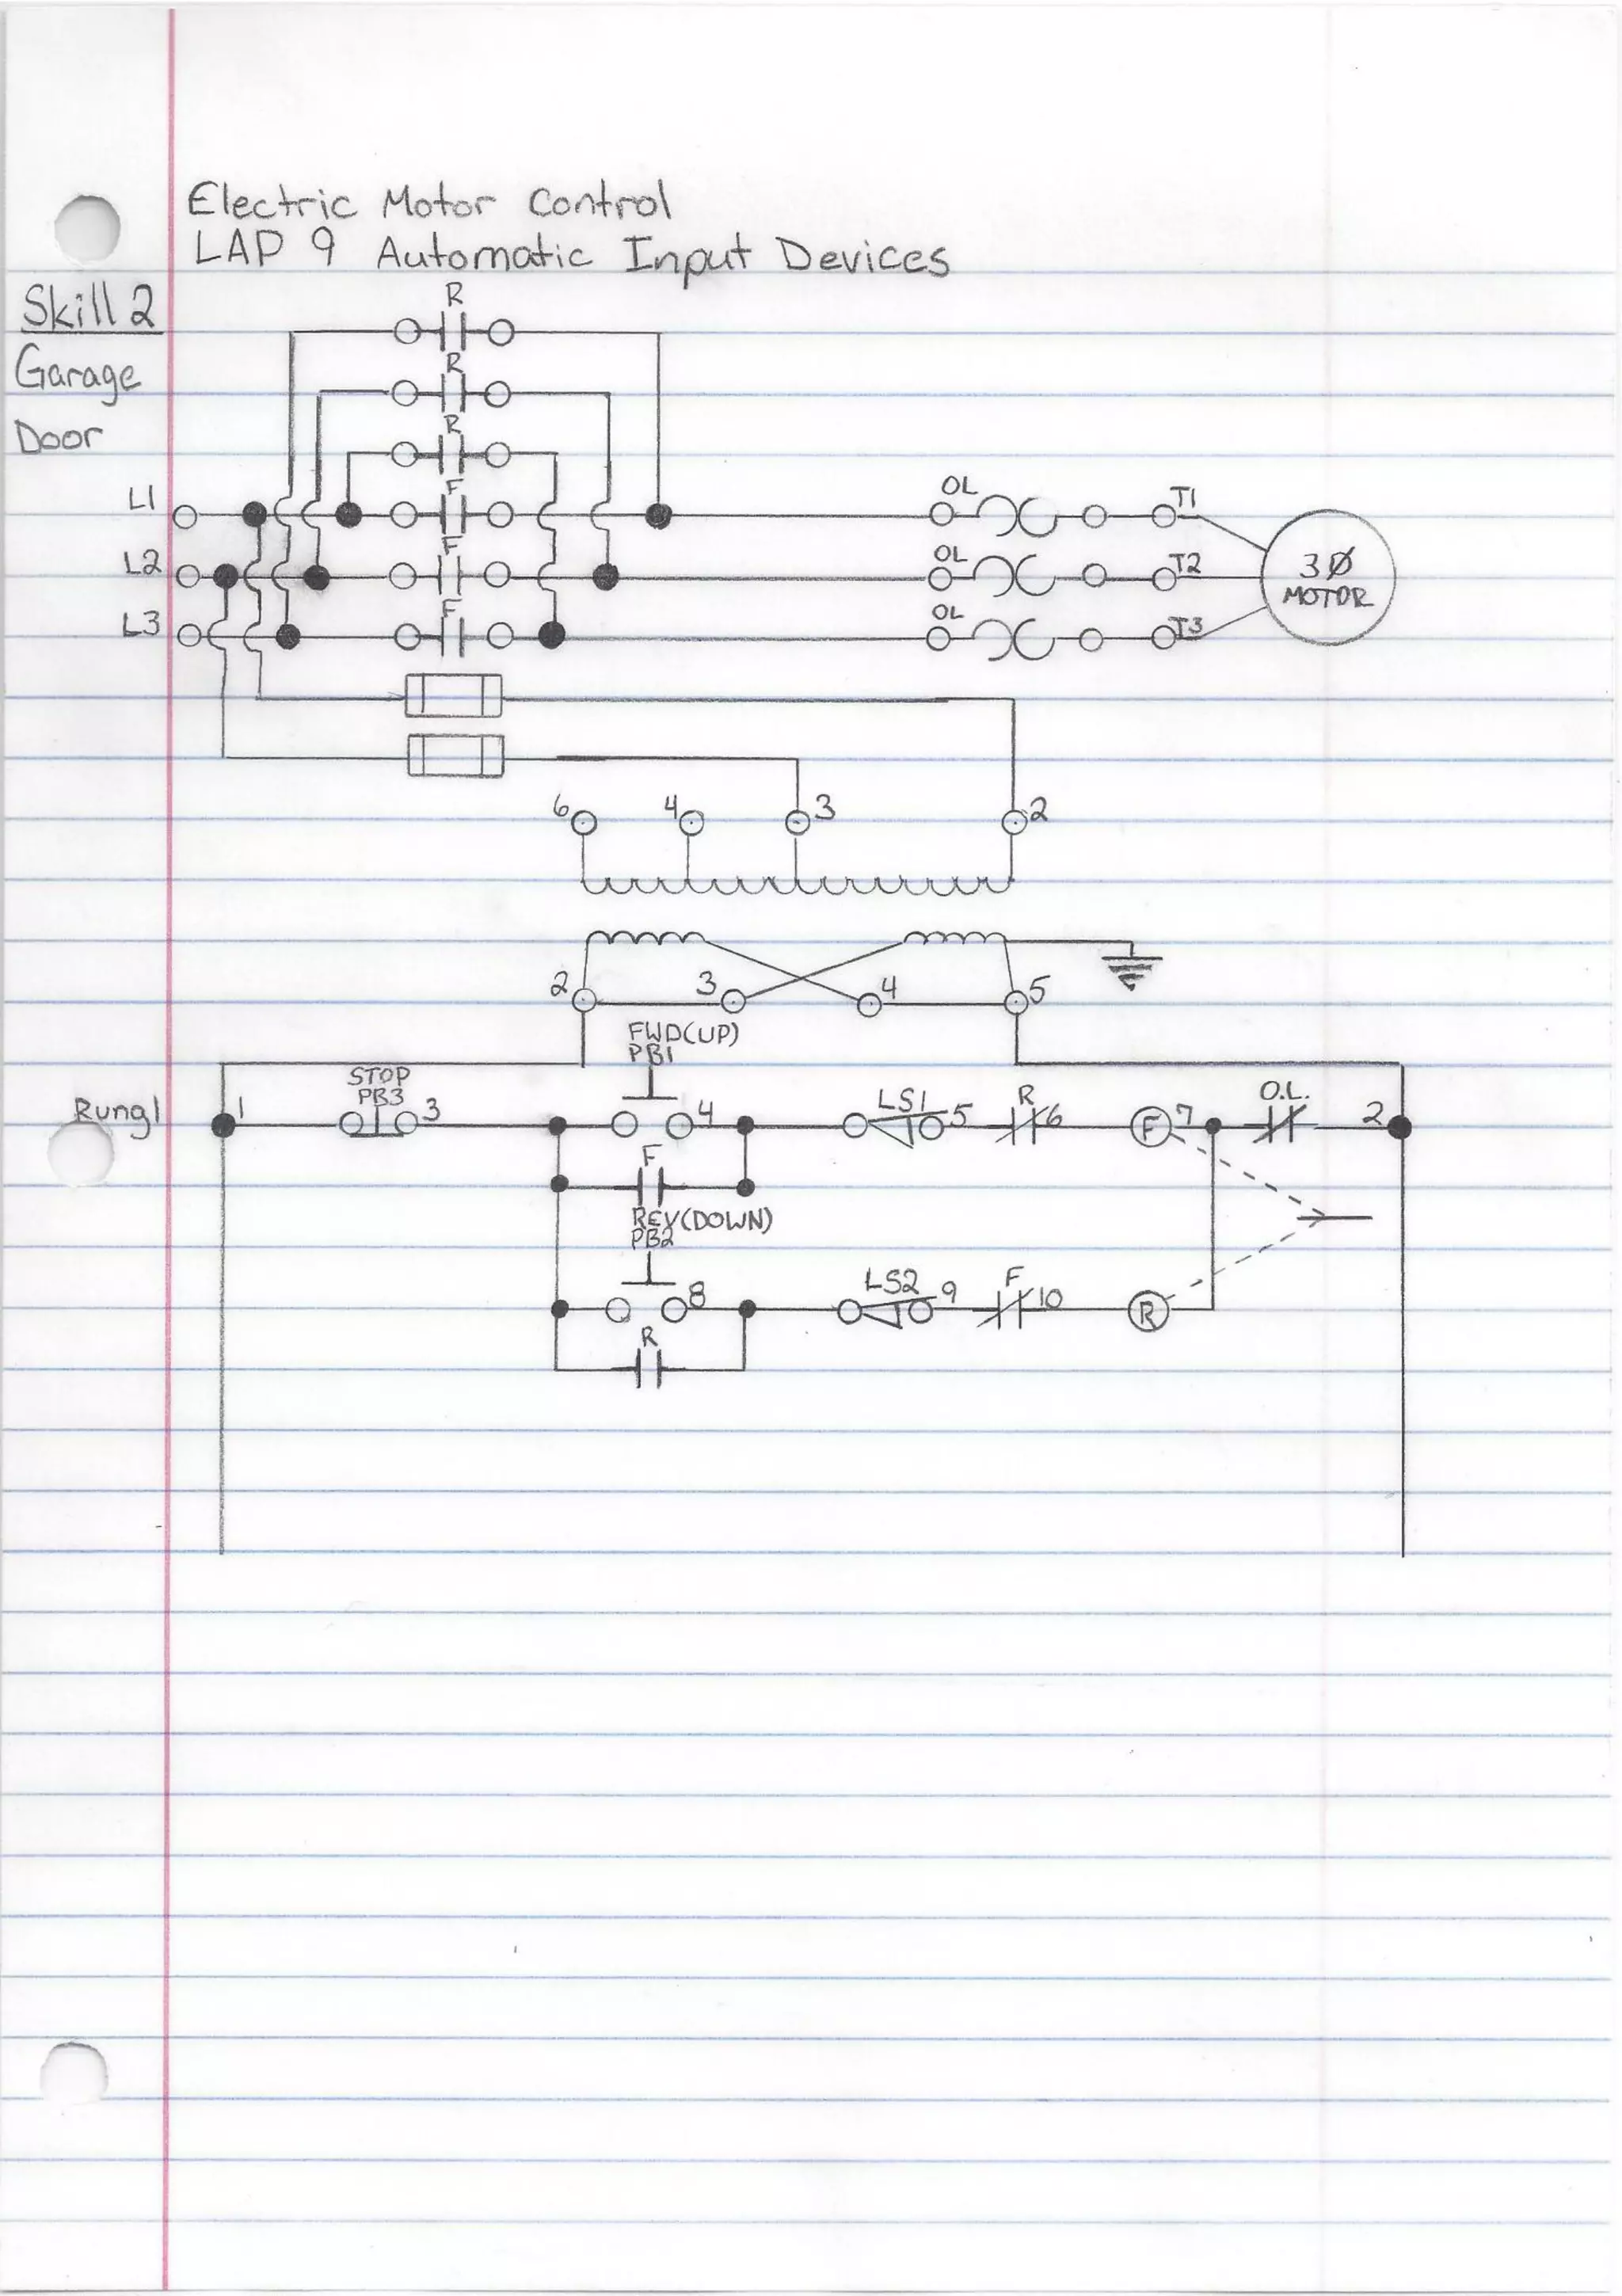 Electric Motor Control
LAP 9 Automatic Input Devices
Skill 2
Garage
Door
R
R
R
L1 F OL T1
L2 F OL T2
3Ø
MOTOR
L3 F OL T3
6 4 3 2
2 3 4 5
FWD(UP)
PB1
STOP
PB3
Rung1 1 3 4 LS1 5 R 6 F 7 O.L. 2
F
REV(DOWN)
PB2
8 LS2 9 F 10 R
R